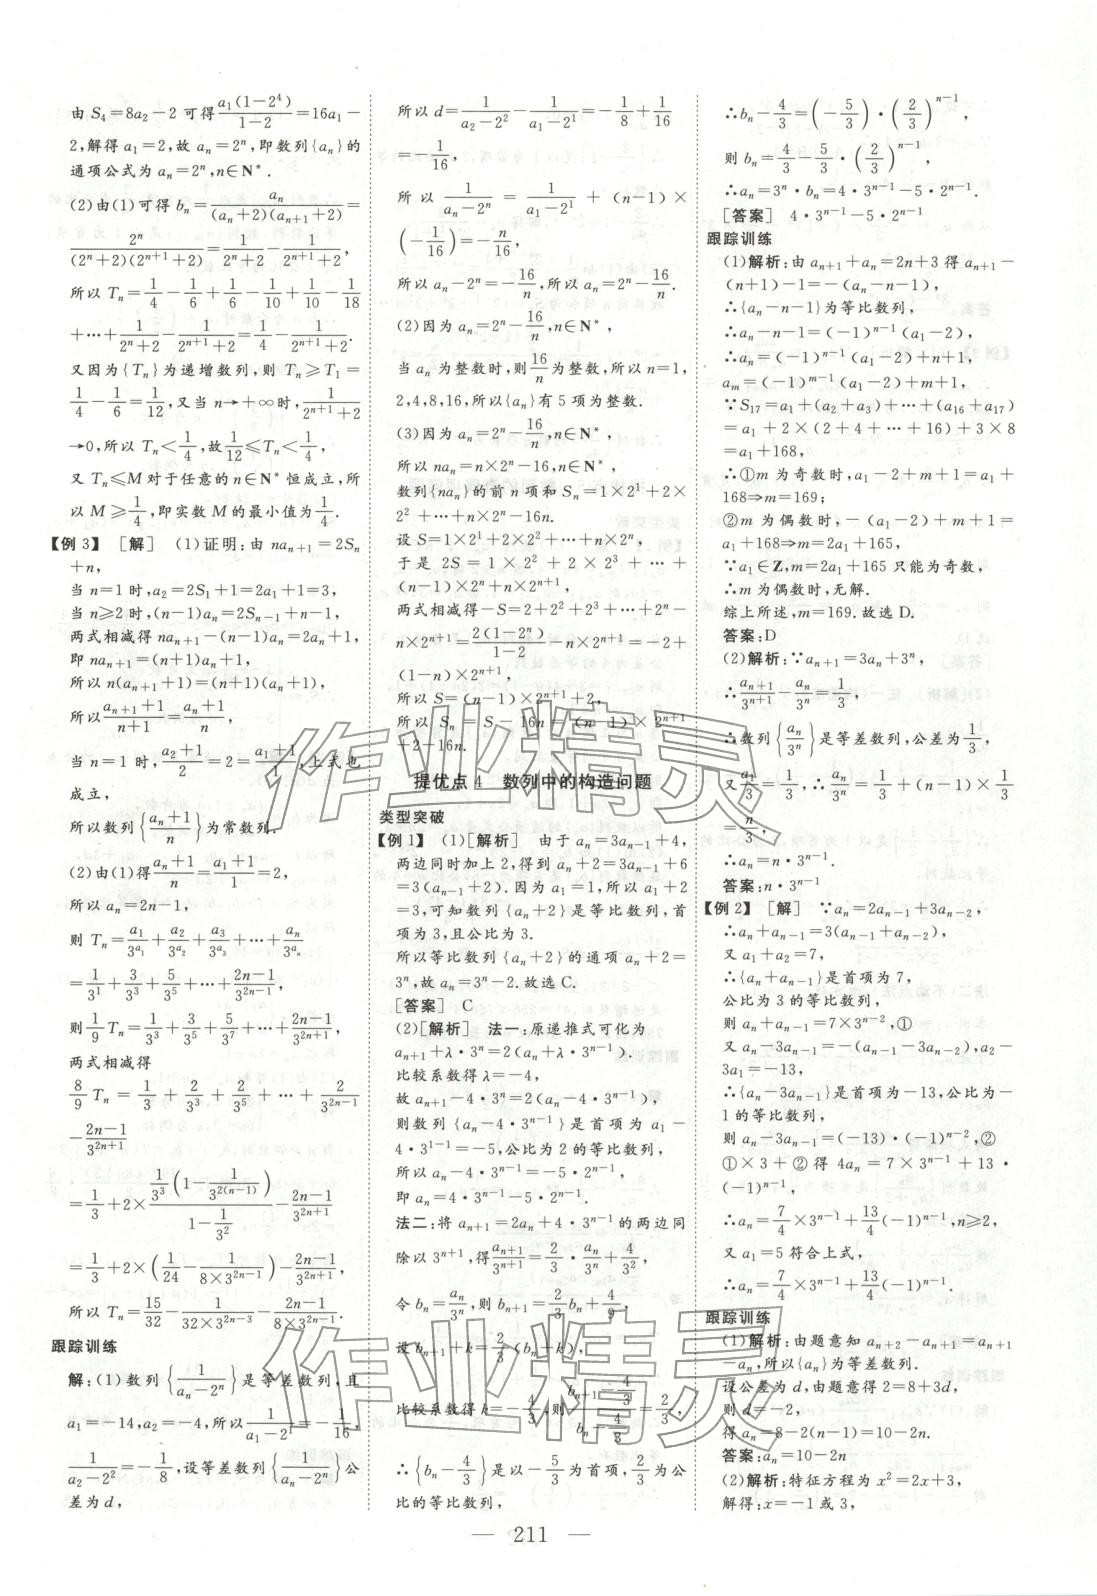 由 S₄=8a₂-2 可得 a₁(1-2⁴)/(1-2)=16a₁-
2,解得 a₁=2,故 aₙ=2ⁿ,即数列{aₙ}的
通项公式为 aₙ=2ⁿ,n∈N*.
(2)由(1)可得 bₙ=aₙ/((aₙ+2)(aₙ₊₁+2))=
2ⁿ/((2ⁿ+2)(2ⁿ⁺¹+2))=1/(2ⁿ+2)-1/(2ⁿ⁺¹+2),
所以 Tₙ=1/4-1/6+1/6-1/10+1/10-1/18
+…+1/(2ⁿ+2)-1/(2ⁿ⁺¹+2)=1/4-1/(2ⁿ⁺¹+2).
又因为{Tₙ}为递增数列,则 Tₙ≥T₁=
1/4-1/6=1/12,又当 n→+∞时,1/(2ⁿ⁺¹+2)
→0,所以 Tₙ<1/4,故1/12≤Tₙ<1/4,
又 Tₙ≤M 对于任意的 n∈N*恒成立,所
以 M≥1/4,即实数 M 的最小值为1/4.
【例 3】 [解] (1)证明:由 naₙ₊₁=2Sₙ
+n,
当 n=1 时,a₂=2S₁+1=2a₁+1=3,
当 n≥2 时,(n-1)aₙ=2Sₙ₋₁+n-1,
两式相减得 naₙ₊₁-(n-1)aₙ=2aₙ+1,
即 naₙ₊₁=(n+1)aₙ+1,
所以 n(aₙ₊₁+1)=(n+1)(aₙ+1),
所以(aₙ₊₁+1)/(n+1)=(aₙ+1)/n,
当 n=1 时,(a₂+1)/2=2=(a₁+1)/1,上式也
成立,
所以数列{(aₙ+1)/n}为常数列.
(2)由(1)得(aₙ+1)/n=(a₁+1)/1=2,
所以 aₙ=2n-1,
则 Tₙ=a₁/3^(a₁)+a₂/3^(a₂)+a₃/3^(a₃)+…+aₙ/3^(aₙ)
=1/3¹+3/3³+5/3⁵+…+(2n-1)/3²ⁿ⁻¹,
则1/9Tₙ=1/3³+3/3⁵+5/3⁷+…+(2n-1)/3²ⁿ⁺¹,
两式相减得
8/9 Tₙ=1/3+2/3³+2/3⁵+…+2/3²ⁿ⁻¹
-(2n-1)/3²ⁿ⁺¹
=1/3+2×(1/3³(1-1/3²⁽ⁿ⁻¹⁾))/(1-1/3²)-(2n-1)/3²ⁿ⁺¹
=1/3+2×(1/24-1/(8×3²ⁿ⁻¹))-(2n-1)/3²ⁿ⁺¹,
所以 Tₙ=15/32-1/(32×3²ⁿ⁻³)-(2n-1)/(8×3²ⁿ⁻¹).
跟踪训练
解:(1)数列{1/(aₙ-2ⁿ)}是等差数列,且
a₁=-14,a₂=-4,所以1/(a₁-2¹)=-1/16,
1/(a₂-2²)=-1/8,设等差数列{1/(aₙ-2ⁿ)}公
差为 d,
所以 d=1/(a₂-2²)-1/(a₁-2¹)=-1/8+1/16
=-1/16,
所以 1/(aₙ-2ⁿ)=1/(a₁-2¹)+(n-1)×
(-1/16)=-n/16,
所以 aₙ-2ⁿ=-16/n,所以 aₙ=2ⁿ-16/n.
(2)因为 aₙ=2ⁿ-16/n,n∈N*,
当 aₙ 为整数时,则16/n为整数,所以 n=1,
2,4,8,16,所以{aₙ}有 5 项为整数.
(3)因为 aₙ=2ⁿ-16/n,n∈N*,
所以 naₙ=n×2ⁿ-16,n∈N*,
数列{naₙ}的前 n 项和 Sₙ=1×2¹+2×
2²+…+n×2ⁿ-16n.
设 S=1×2¹+2×2²+…+n×2ⁿ,
于是 2S=1×2²+2×2³+…+
(n-1)×2ⁿ+n×2ⁿ⁺¹,
两式相减得-S=2+2²+2³+…+2ⁿ-
n×2ⁿ⁺¹=2(1-2ⁿ)/(1-2)-n×2ⁿ⁺¹=-2+
(1-n)×2ⁿ⁺¹,
所以 S=(n-1)×2ⁿ⁺¹+2,
所以 Sₙ=S-16n=(n-1)×2ⁿ⁺¹
+2-16n.
提优点 4 数列中的构造问题
类型突破
【例 1】 (1)[解析] 由于 aₙ=3aₙ₋₁+4,
两边同时加上 2,得到 aₙ+2=3aₙ₋₁+6
=3(aₙ₋₁+2).因为 a₁=1,所以 a₁+2
=3,可知数列{aₙ+2}是等比数列,首
项为 3,且公比为 3.
所以等比数列{aₙ+2}的通项 aₙ+2=
3ⁿ,故 aₙ=3ⁿ-2.故选 C.
[答案] C
(2)[解析] 法一:原递推式可化为
aₙ₊₁+λ·3ⁿ=2(aₙ+λ·3ⁿ⁻¹).
比较系数得 λ=-4,
故 aₙ₊₁-4·3ⁿ=2(aₙ-4·3ⁿ⁻¹),
则数列{aₙ-4·3ⁿ⁻¹}是首项为 a₁-
4·3¹⁻¹=-5,公比为 2 的等比数列,
所以 aₙ-4·3ⁿ⁻¹=-5·2ⁿ⁻¹.
即 aₙ=4·3ⁿ⁻¹-5·2ⁿ⁻¹.
法二:将 aₙ₊₁=2aₙ+4·3ⁿ⁻¹的两边同
除以 3ⁿ⁺¹,得aₙ₊₁/3ⁿ⁺¹=2/3·aₙ/3ⁿ+4/3²,
令 bₙ=aₙ/3ⁿ,则 bₙ₊₁=2/3bₙ+4/9,
设 bₙ₊₁+k=2/3(bₙ+k),
比较系数得 k=-4/3,则(bₙ₊₁-4/3)/(bₙ-4/3)=2/3,
∴{bₙ-4/3}是以-5/3为首项,2/3为公
比的等比数列,
∴bₙ-4/3=(-5/3)·(2/3)ⁿ⁻¹,
则 bₙ=4/3-5/3·(2/3)ⁿ⁻¹,
∴aₙ=3ⁿ·bₙ=4·3ⁿ⁻¹-5·2ⁿ⁻¹.
[答案] 4·3ⁿ⁻¹-5·2ⁿ⁻¹
跟踪训练
(1)解析:由 aₙ₊₁+aₙ=2n+3 得 aₙ₊₁-
(n+1)-1=-(aₙ-n-1),
∴{aₙ-n-1}为等比数列,
∴aₙ-n-1=(-1)ⁿ⁻¹(a₁-2),
∴aₙ=(-1)ⁿ⁻¹(a₁-2)+n+1,
aₘ=(-1)ᵐ⁻¹(a₁-2)+m+1,
∵S₁₇=a₁+(a₂+a₃)+…+(a₁₆+a₁₇)
=a₁+2×(2+4+…+16)+3×8
=a₁+168,
∴①m 为奇数时,a₁-2+m+1=a₁+
168⇒m=169;
②m 为偶数时,-(a₁-2)+m+1=
a₁+168⇒m=2a₁+165,
∵a₁∈Z,m=2a₁+165 只能为奇数,
∴m 为偶数时,无解.
综上所述,m=169.故选 D.
答案:D
(2)解析:∵aₙ₊₁=3aₙ+3ⁿ,
∴aₙ₊₁/3ⁿ⁺¹-aₙ/3ⁿ=1/3,
∴数列{aₙ/3ⁿ}是等差数列,公差为1/3,
又a₁/3=1/3,∴aₙ/3ⁿ=1/3+(n-1)×1/3
=n/3,
∴aₙ=n·3ⁿ⁻¹.
答案:n·3ⁿ⁻¹
【例 2】 [解] ∵aₙ=2aₙ₋₁+3aₙ₋₂,
∴aₙ+aₙ₋₁=3(aₙ₋₁+aₙ₋₂),
又 a₁+a₂=7,
∴{aₙ+aₙ₋₁}是首项为 7,
公比为 3 的等比数列,
则 aₙ+aₙ₋₁=7×3ⁿ⁻²,①
又 aₙ-3aₙ₋₁=-(aₙ₋₁-3aₙ₋₂),a₂-
3a₁=-13,
∴{aₙ-3aₙ₋₁}是首项为-13,公比为-
1 的等比数列,
则 aₙ-3aₙ₋₁=(-13)·(-1)ⁿ⁻²,②
①×3+②得 4aₙ=7×3ⁿ⁻¹+13·
(-1)ⁿ⁻¹,
∴aₙ=7/4×3ⁿ⁻¹+13/4(-1)ⁿ⁻¹,n≥2,
又 a₁=5 符合上式,
∴aₙ=7/4×3ⁿ⁻¹+13/4(-1)ⁿ⁻¹.
跟踪训练
(1)解析:由题意知 aₙ₊₂-aₙ₊₁=aₙ₊₁
-aₙ,所以{aₙ}为等差数列.
设公差为 d,由题意得 2=8+3d,
则 d=-2,
得 aₙ=8-2(n-1)=10-2n.
答案:aₙ=10-2n
(2)解析:特征方程为 x²=2x+3,
解得:x=-1 或 3,
— 211 —
作业精灵
作业精灵